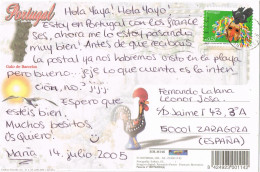 Portugal
Hola Yaya! Hola Yayo!
Estoy en Portugal con los frances
ses, ahora me lo estoy pasando
muy bien! Antes de que recibais
la postal ya nos habremos visto en la playa
pero bueno... jeje lo que cuenta es la inten
ción, no?
Espero que
esteis bien,
Muchos besitos
Os quiero!
María, 14, julio, 2005
Galo de Barcelos
Fernando
Leonor
c/ Jaime I 43, 3ºA
50001 ZARAGOZA
(ESPAÑA)